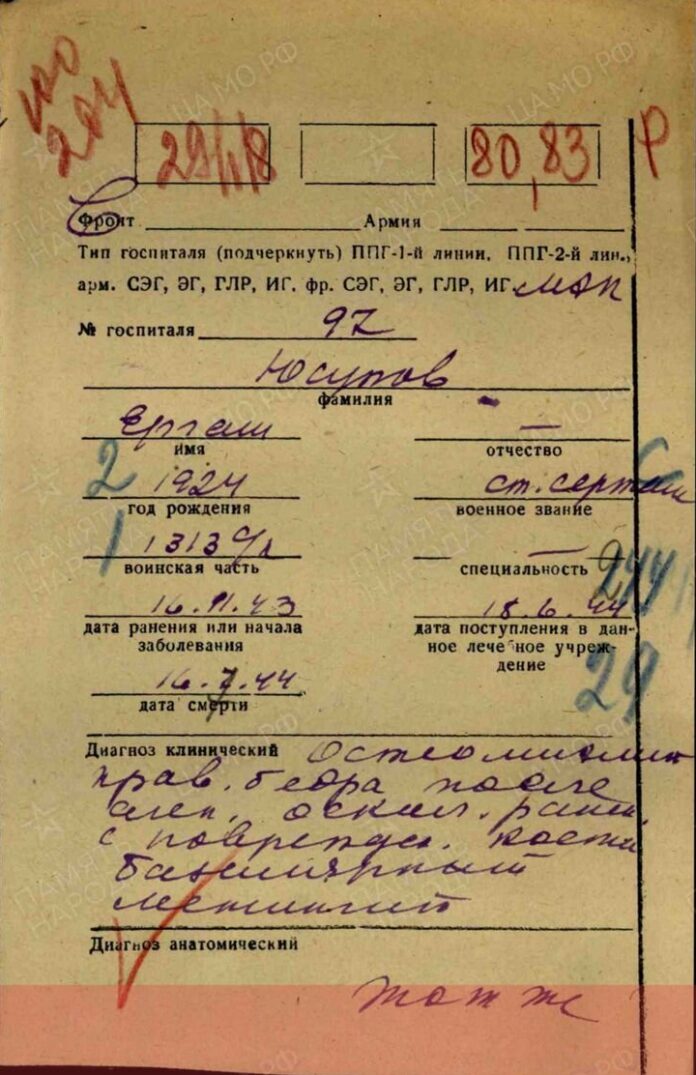 204
29/II/8
80,83
Р
Фронт Армия
Тип госпиталя (подчеркнуть) ППГ-1-й линии, ППГ-2-й лин.,
арм. СЭГ, ЭГ, ГЛР, ИГ, фр. СЭГ, ЭГ, ГЛР, ИГ МЭП
№ госпиталя 97
Юсупов
фамилия
Ергаш —
имя отчество
2 1924 ст. сержант
год рождения военное звание
1 1313 с/п —
воинская часть специальность
244
16.11.43 18.6.44
дата ранения или начала дата поступления в дан-
заболевания ное лечебное учреж-
дение
29
16.7.44
дата смерти
Диагноз клинический Остеомиэлит
прав. бедра после
слеп. оскол. ранен.
с поврежд. кости
базилярный
менингит
Диагноз анатомический
тот же